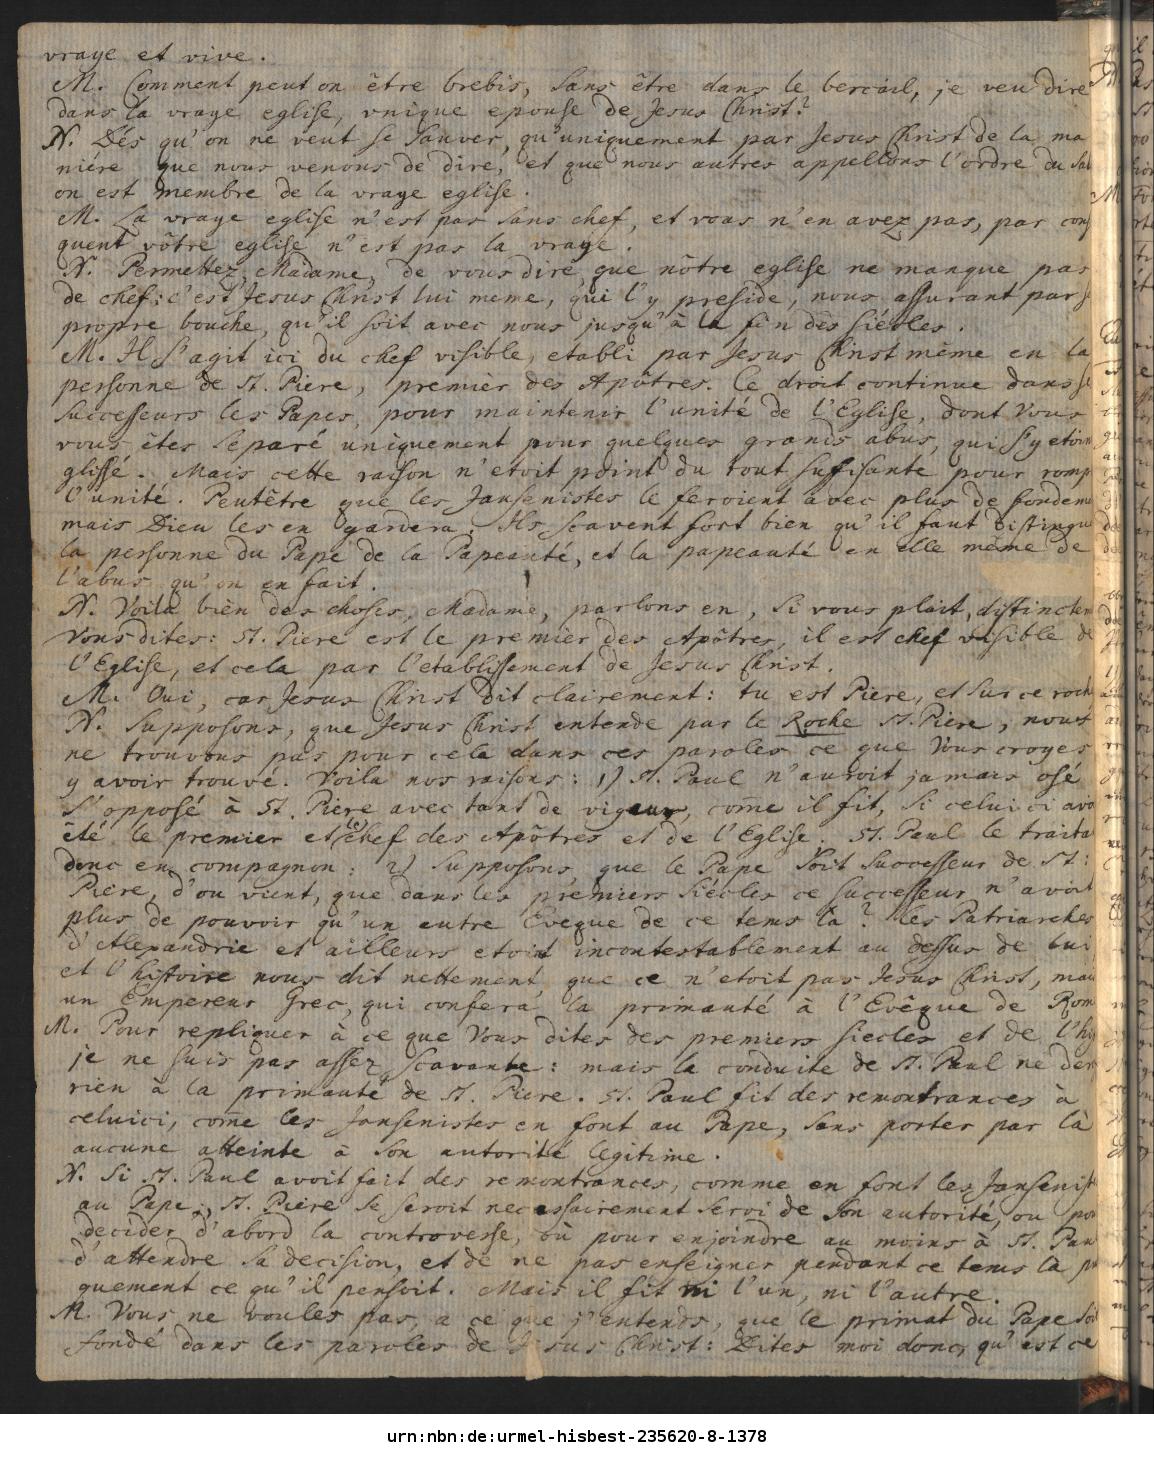 vraye et vive.
M. Comment peut on être brebis, sans être dans le bercail, je veu dire
dans la vraye eglise, vnique epouse de Jesus Christ?
N. Dés qu'on ne veut se sauver, qu'uniquement par Jesus Christ de la ma
niére que nous venons de dire, et que nous autres appellons l'ordre du Sal
on est membre de la vraye eglise.
M. La vraye eglise n'est pas sans chef, et vous n'en avez pas, par cons
quent vôtre eglise n'est pas la vraye.
N. Permettez, Madame, de vous dire, que nôtre eglise ne manque pas
de chef: c'est Jesus Christ lui meme, qui l'y preside, nous assurant par s
propre bouche, qu'il soit avec nous jusqu'à la fin des siécles.
M. Il s'agit ici du chef visible, etabli par Jesus Christ même en la
personne de St. Piere, premièr des Apôtres. Ce droit continue dans se
successeurs les Papes, pour maintenir l'unité de l'Eglise, dont Vous
vous êtes separé uniquement pour quelques grands abus, qui s'y etoin
glissé. Mais cette raison n'etoit point du tout suffisante pour romp
l'unité. Peutêtre que les Jansenistes le feroient avec plus de fondem
mais Dieu les en gardera. Ils scavent fort bien qu'il faut distingu
la personne du Pape de la Papeauté, et la papeauté en elle même de
l'abus qu'on en fait.
N. Voilà bièn des choses, Madame, parlons en, si vous plait, distinctem
Vous dites: St. Piere est le premier des Apôtres, il est chef visible de
l'Eglise, et cela par l'etablissement de Jesus Christ.
M. Oui, car Jesus Christ dit clairement: tu est Piere, et sur ce roch
N. Supposons, que Jesus Christ entende par le Roche St. Piere, nous
ne trouvons pas pour cela dans ces paroles ce que Vous croyes
y avoir trouvé. Voila nos raisons: 1) St. Paul n'auroit jamais osé
s'opposé à St. Piere avec tant de vigeur, com̄e il fit, si celui ci avo
été le premier et (le) Chef des Apôtres et de l'Eglise. St. Paul le traita
donc en compagnon: 2) Supposons, que le Pape soit successeur de St:
Piere, d'ou vient, que dans les premiers siécles ce successeur n'avoit
plus de pouvoir qu'un autre Eveque de ce tems là? les Patriarches
d'Alexandrie et ailleurs etoint incontestablement au dessus de lui
et l'histoire nous dit nettement, que ce n'etoit pas Jesus Christ, mai
un Empereur Grec, qui confera la primauté à l'Evêque de Rom
M. Pour repliquer à ce que Vous dites des premiers siecles et de l'his
je ne suis pas assez scavante: mais la conduite de St. Paul ne der
rien à la primauté de St. Piere. St. Paul fit des remontrances à
celuici, com̄e les Jansenistes en font au Pape, sans porter par là
aucune atteinte à son autorité legitime.
N. Si St. Paul avoit fait des remontrances, comme en font les Jansenist
au Pape; St. Piere se seroit necessairement servi de son autorité, ou pou
decider d'abord la controverse, où pour enjoindre au moins à St. Pau
d'attendre sa decision, et de ne pas enseigner pendant ce tems là pu
quement ce qu'il pensoit. Mais il fit ni l'un, ni l'autre.
M. Vous ne voules pas, a ce que j'entends, que le primat du Pape soi
fondé dans les paroles de Jesus Christ: Dites moi donc, qu'est ce